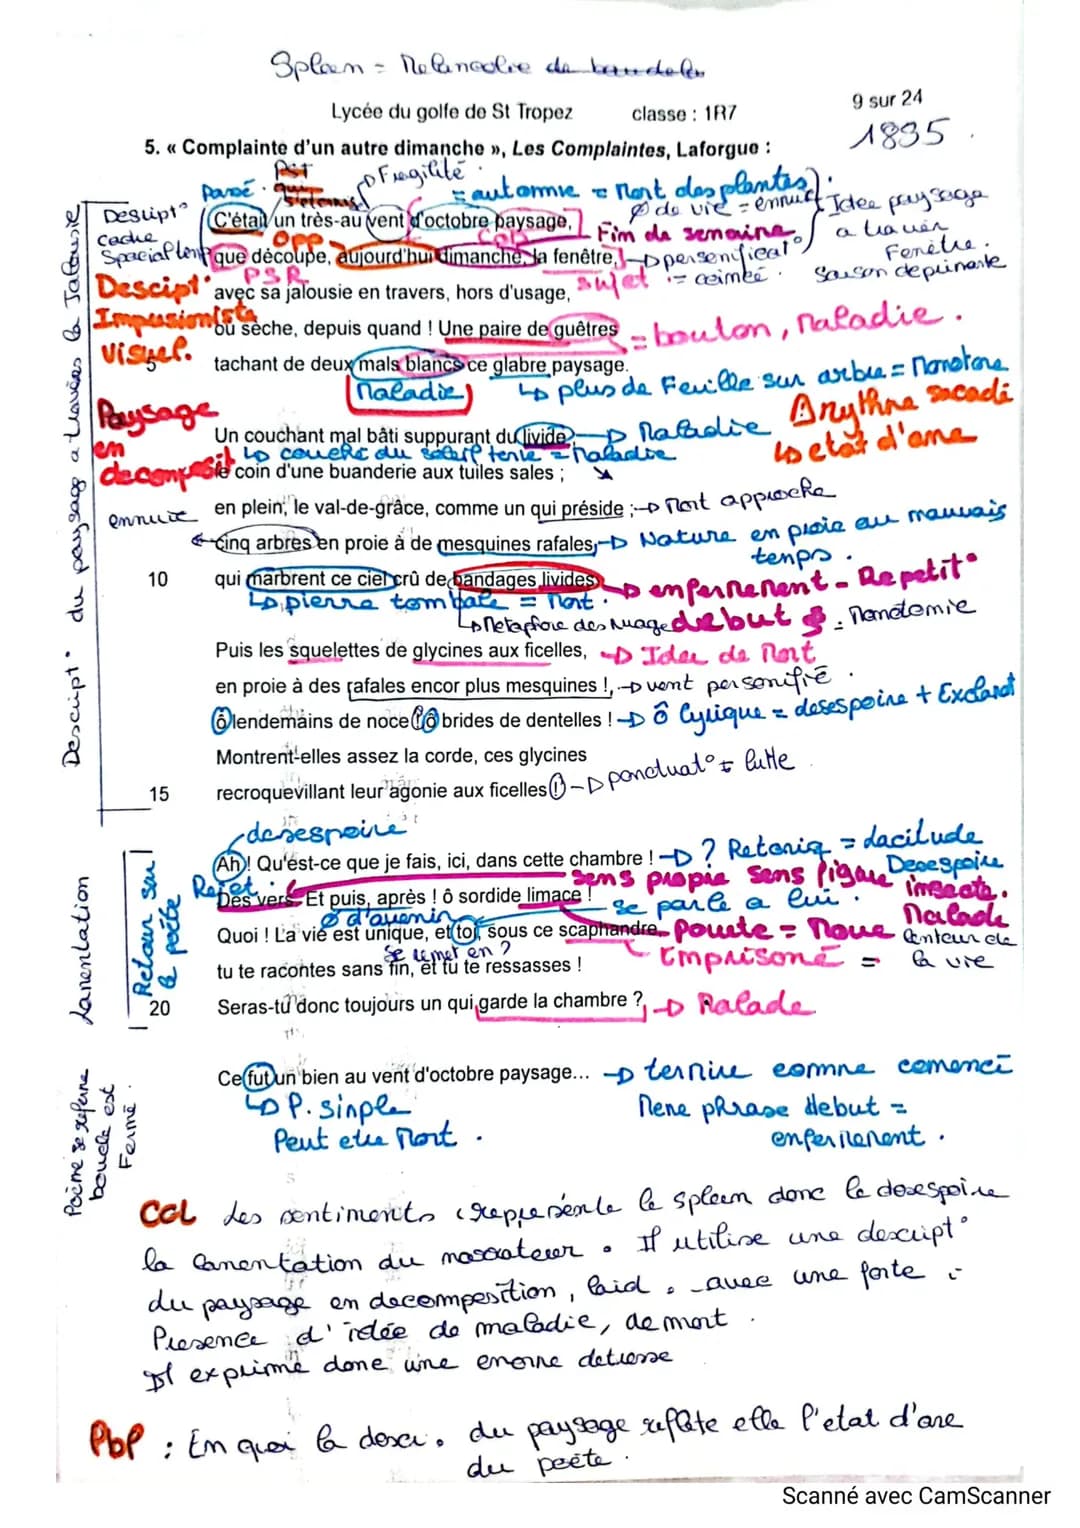 Spleen = Melancolie de baudeler
Lycée du golfe de St Tropez classe : 1R7 9 sur 24
1835.
5. « Complainte d'un autre dimanche », Les Complaintes, Laforgue :
Passé. Fragilité
= automne = Mort des plantes
Ø de vie = ennui
Idée paysage a travers Fenêtre.
Saison deprimante
Descript°
cadre
C'était un très-au vent d'octobre paysage,
Fin de semaine
opp COD
que découpe, aujourd'hui dimanche, la fenêtre,
personificat°
PSR sujet
Descript° Impresioniste visuel.
avec sa jalousie en travers, hors d'usage,
où sèche, depuis quand ! Une paire de guêtres
= bouton, maladie.
tachant de deux mals blancs ce glabre paysage.
Maladie
plus de Feuille sur arbre = Monotone
Arythme sacadé
état d'ame
Paysage en
Un couchant mal bâti suppurant du livide
Maladie
le coin d'une buanderie aux tuiles sales ;
ennuie
en plein, le val-de-grâce, comme un qui préside ;
Mort approche
Cinq arbres en proie à de mesquines rafales,
Nature en proie au mauvais temps.
10 qui marbrent ce ciel crû de bandages livides
enfermement - Repetit°
pierre tombale = Mort.
Metaphore des Nuage
debut
Monotomie
Puis les squelettes de glycines aux ficelles,
Idee de Mort
en proie à des rafales encor plus mesquines !,
vent personifié.
Ô lendemains de noce ! ô brides de dentelles !
ô lyrique = desespoire + Exclamat
Montrent-elles assez la corde, ces glycines
15 recroquevillant leur agonie aux ficelles !
ponctuat° = lutte
Descript° du paysage a travers la Jalousie
desespoire
Ah ! Qu'est-ce que je fais, ici, dans cette chambre !
? Retoriq = dacitude
Desespoire
Rejet. sens propre sens figure insecte.
Des vers. Et puis, après ! ô sordide limace !
se parle a lui.
Ø d'avenir
Malade
Quoi ! La vie est unique, et toi, sous ce scaphandre,
Emprisoné =
lenteur de la vie
tu te racontes sans fin, et tu te ressasses !
20 Seras-tu donc toujours un qui garde la chambre ?
Malade
Lamentation
Retour sur le poète
Ce fut un bien au vent d'octobre paysage...
termine comme comencé
P. simple
Peut etre Mort.
Meme phrase debut =
enfermement.
Poème se referme
boucle est
Fermé.
CCL Les sentiments représente le spleen donc le desespoire
la lamentation du narrateur. Il utilise une descript°
du paysage en decomposition, laid, avec une forte
Presence d'idée de maladie, de mort.
Il exprime donc une enorme detresse
PbP : En quoi la descr. du paysage reflete elle l'etat d'ame
du poète.
Scanné avec CamScanner